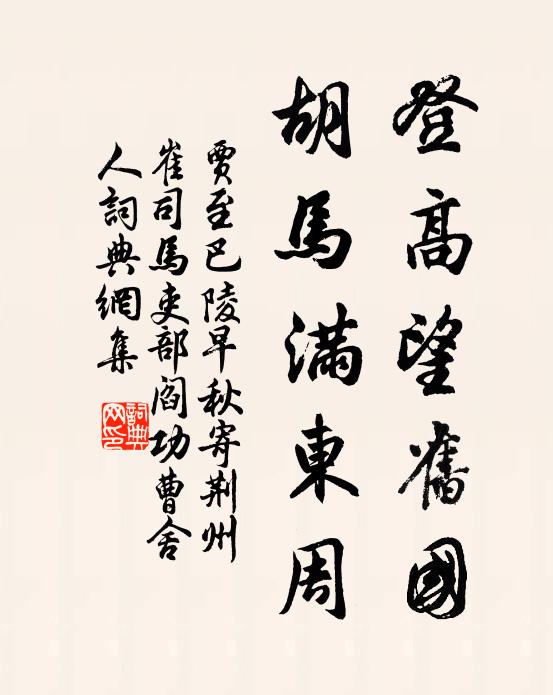 登高望舊國
胡馬滿東周
賈至巴陵早秋寄荆州
崔司馬吏部閻功曹舍
人詞典網集
詞典网印